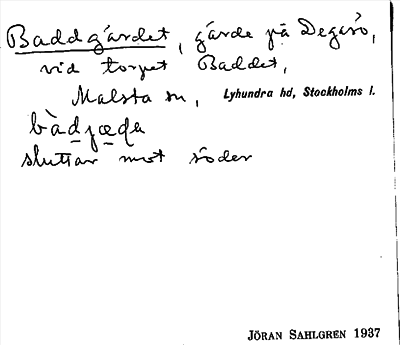 Baddgärdet, gärde på Degerö,
vid torpet Baddet,
Malsta sn, Lyhundra hd, Stockholms l.
bàdjæda
sluttar mot söder
JÖRAN SAHLGREN 1937